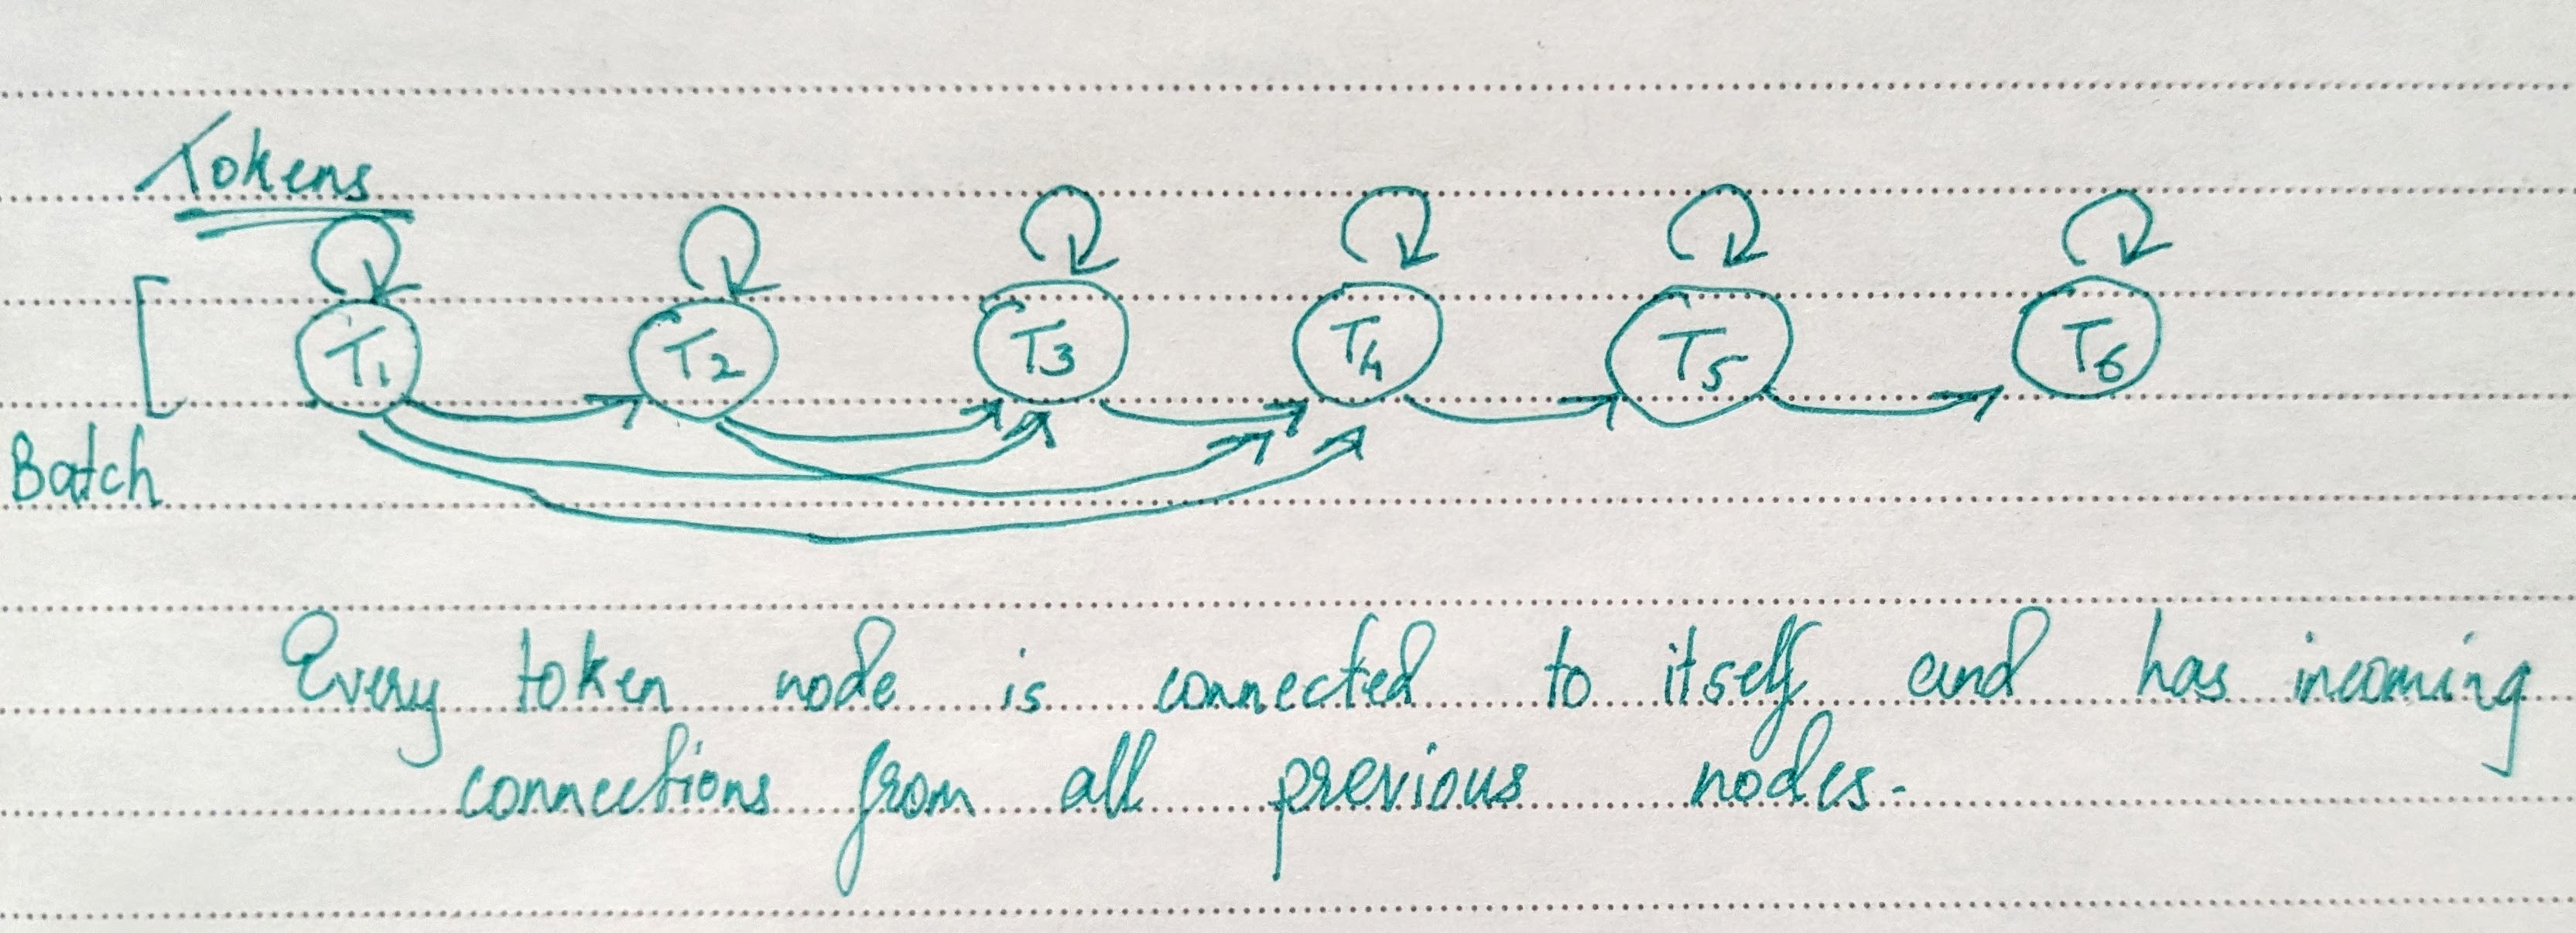 Tokens
T1 T2 T3 T4 T5 T6
Batch
Every token node is connected to itself and has incoming
connections from all previous nodes.